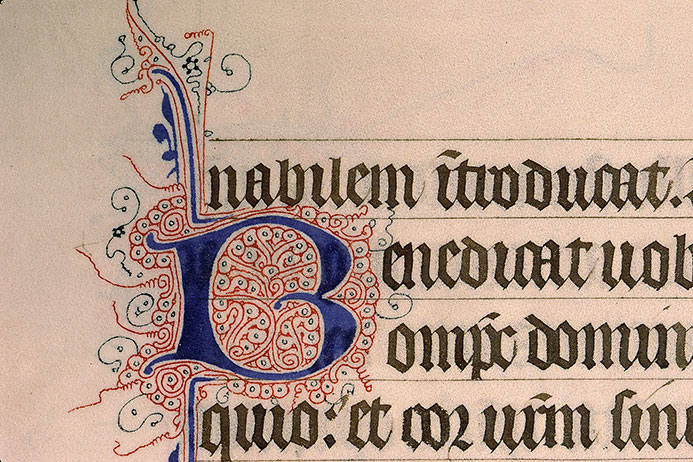 nabilem ītroducat..
Benedicat uob
omp̄c domin
quio: et cor ur̄m sinu